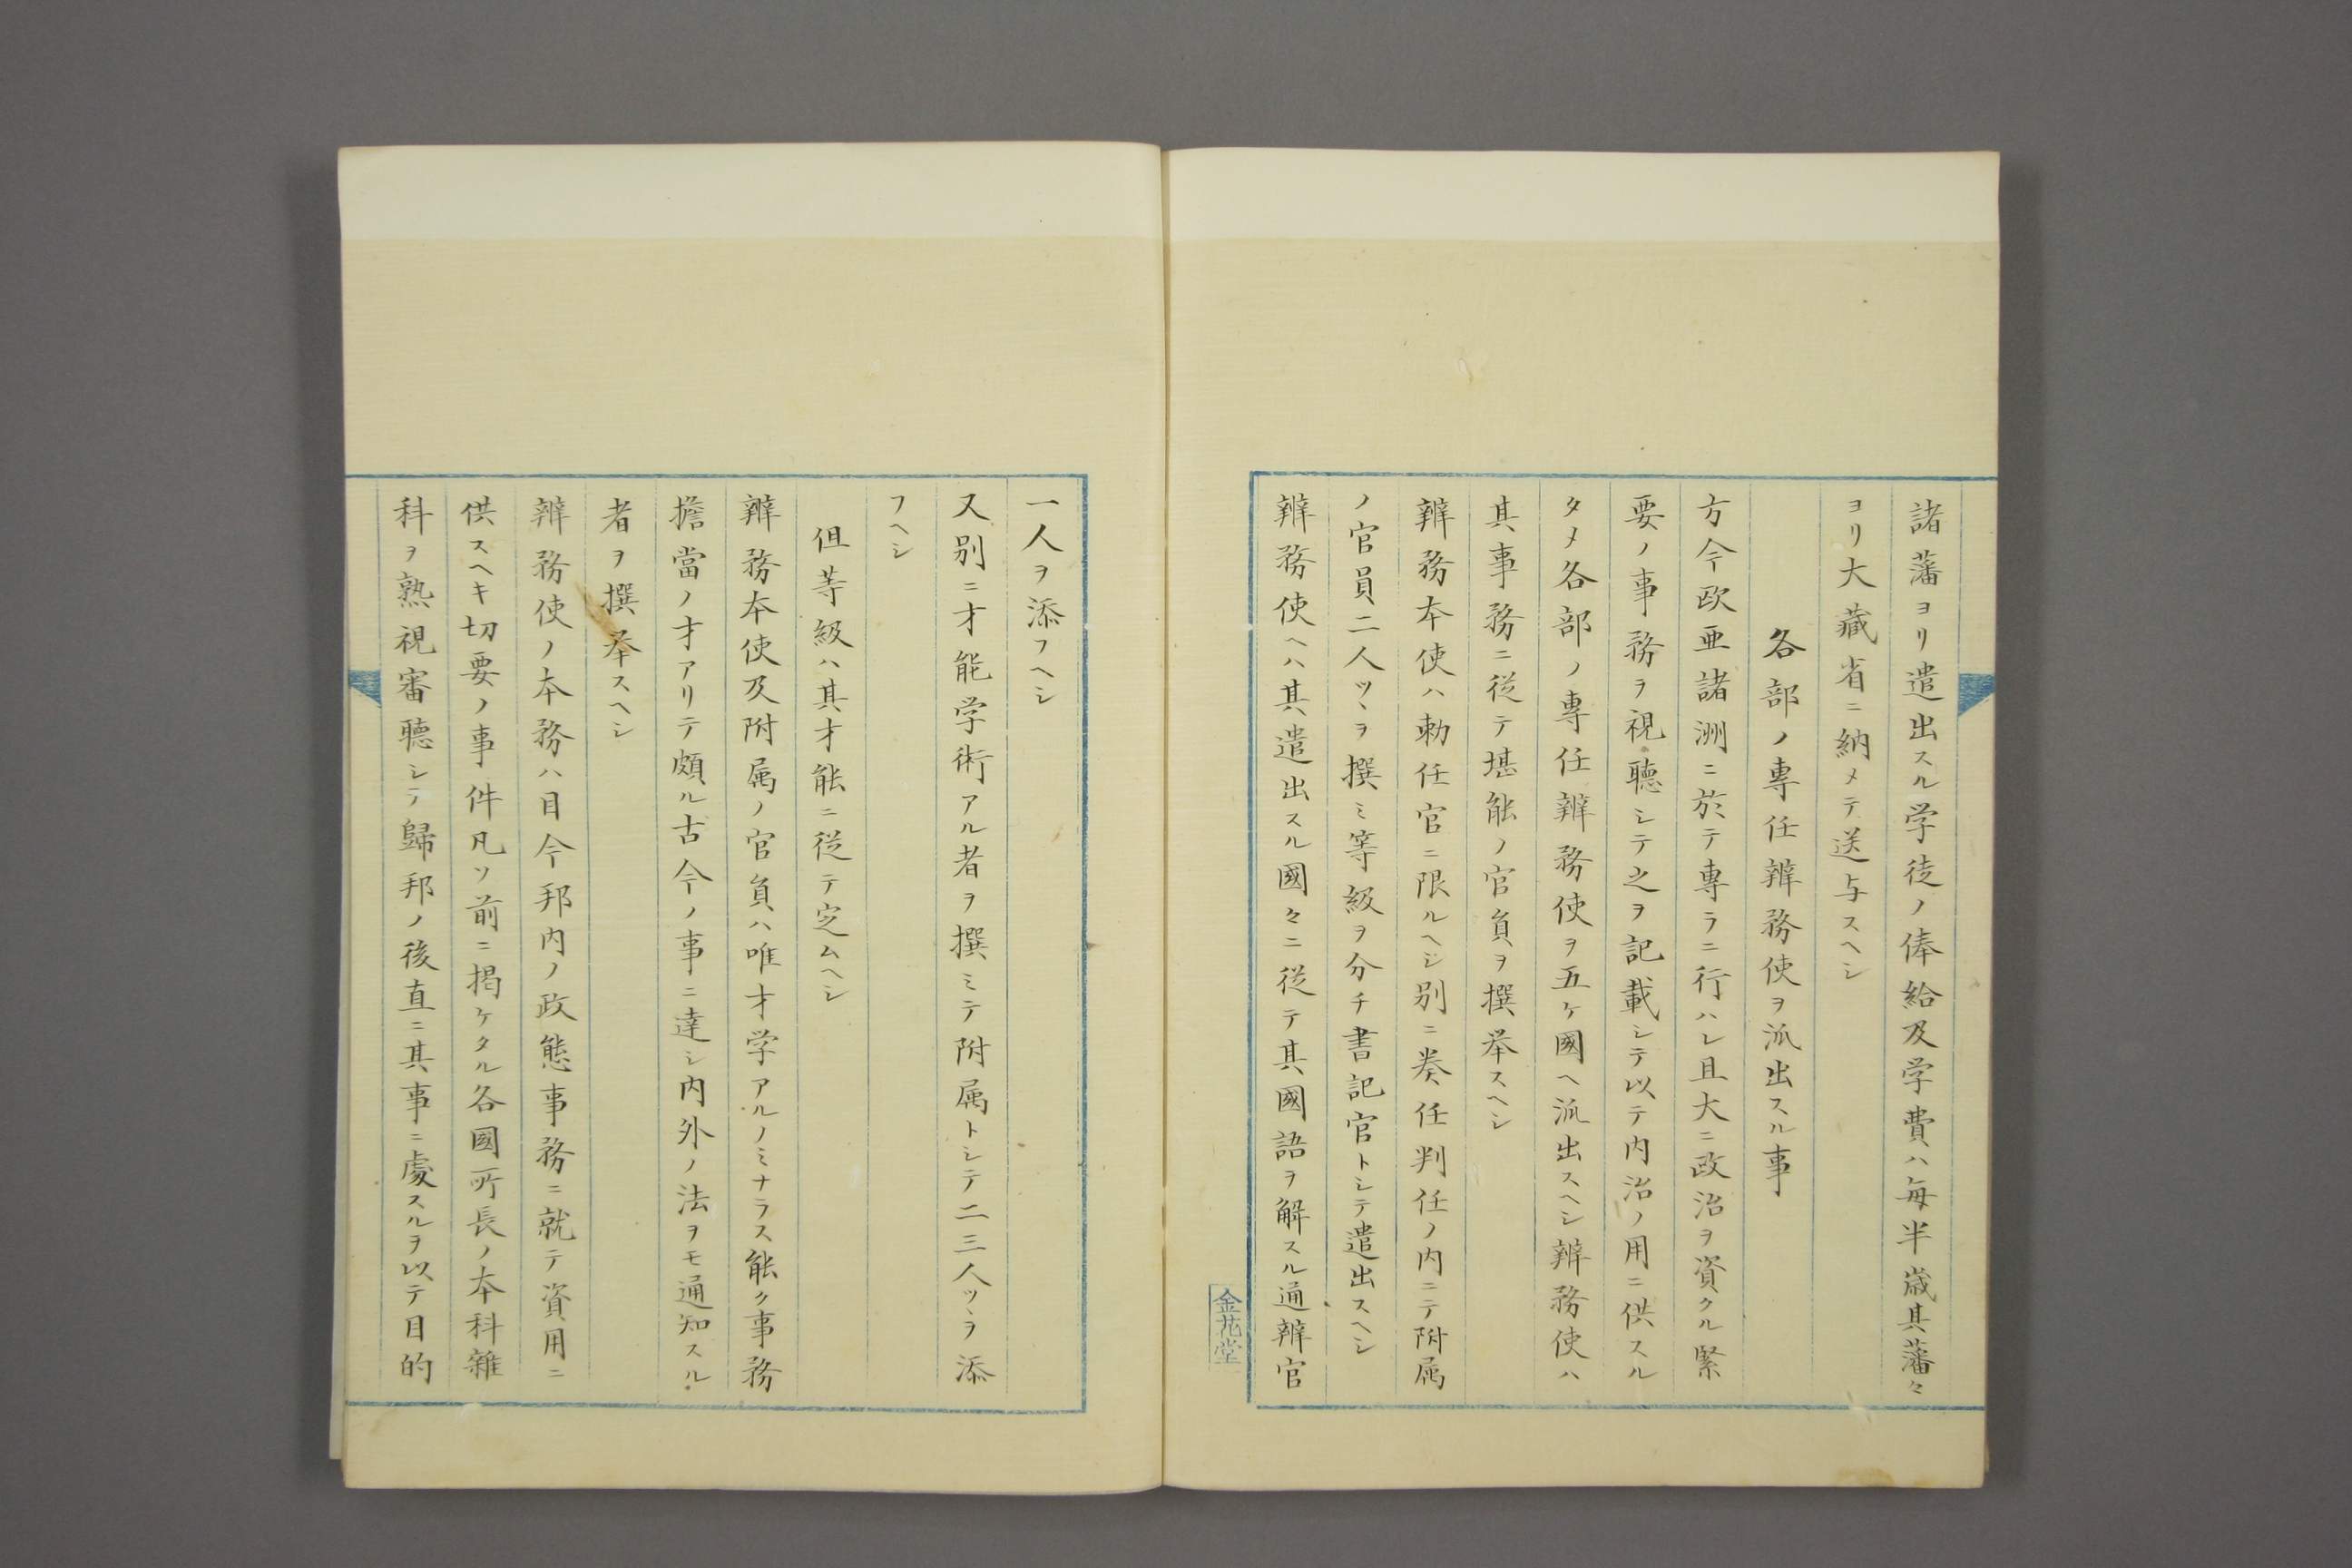 諸藩ヨリ遣出スル学徒ノ俸給及学費ハ毎半歳其藩々
ヨリ大藏省ニ納メテ送与スヘシ
各部ノ專任辨務使ヲ派出スル事
方今欧亜諸洲ニ於テ專ラニ行ハレ且大ニ政治ヲ資クル緊
要ノ事務ヲ視聴シテ之ヲ記載シテ以テ内治ノ用ニ供スル
タメ各部ノ專任辨務使ヲ五ケ國ヘ派出スヘシ辨務使ハ
其事務ニ従テ堪能ノ官員ヲ撰挙スヘシ
辨務本使ハ勅任官ニ限ルヘシ別ニ奏任判任ノ内ニテ附属
ノ官員二人ツヽヲ撰ミ等級ヲ分チ書記官トシテ遣出スヘシ
辨務使ヘハ其遣出スル國々ニ従テ其國語ヲ解スル通辨官
金花堂
一人ヲ添フヘシ
又別ニ才能学術アル者ヲ撰ミテ附属トシテ二三人ツヽヲ添
フヘシ
但等級ハ其才能ニ従テ定ムヘシ
辨務本使及附属ノ官員ハ唯才学アルノミナラス能ク事務
擔當ノ才アリテ頗ル古今ノ事ニ達シ内外ノ法ヲモ通知スル
者ヲ撰挙スヘシ
辨務使ノ本務ハ目今邦内ノ政態事務ニ就テ資用ニ
供スヘキ切要ノ事件凡ソ前ニ掲ケタル各國所長ノ本科雜
科ヲ熟視審聽シテ歸邦ノ後直ニ其事ニ處スルヲ以テ目的